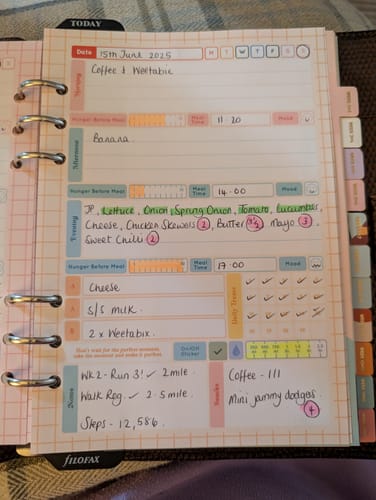 TODAY
Date 15th June 2025 M T W T F S S
Morning
Coffee & Weetabix
Hunger Before Meal Meal Time 11.20 Mood
Afternoon
Banana.
Hunger Before Meal Meal Time 14.00 Mood
Evening
JP, Lettuce, Onion, Spring Onion, Tomato, Cucumber,
Cheese, Chicken Skewers (2), Butter (3½) Mayo (3).
Sweet Chilli (2)
Hunger Before Meal Meal Time 17.00 Mood
A Cheese
A S/S milk.
B 2 x Weetabix.
Daily Treats
Don't wait for the perfect moment,
take the moment and make it perfect.
Notes
Wk 2 - Run 3! ✓ 2 mile.
Walk Reg. ✓ 2.5 mile.
Steps - 12,586.
Coffee - 111
Mini jammy dodgers
(4)
FILOFAX